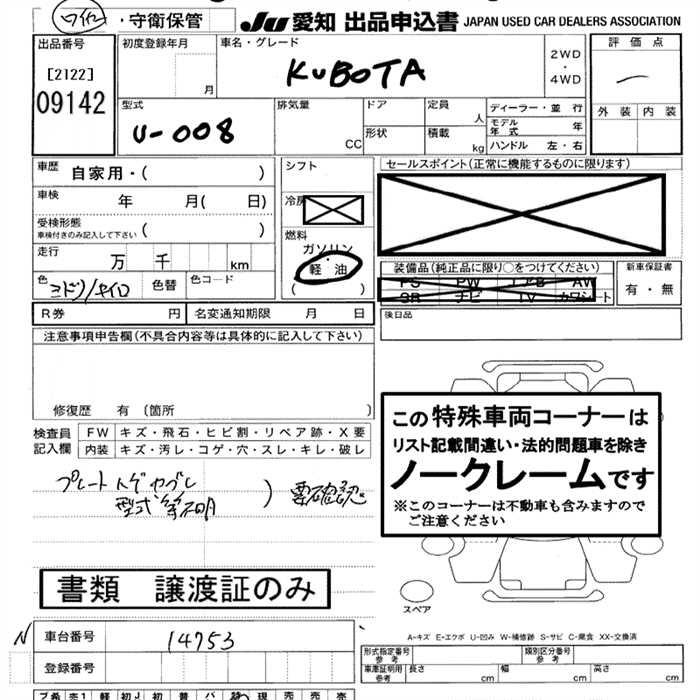 ・守衛保管 JU 愛知 出品申込書 JAPAN USED CAR DEALERS ASSOCIATION
出品番号 初度登録年月 車名・グレード 評価点
[2122] 月 KUBOTA 2WD・4WD
09142
型式 排気量 ドア 定員 ディーラー・並行 外装 内装
U-008 CC 形状 人 モデル年式 年
積載 kg ハンドル 左・右
車歴 自家用・( ) シフト セールスポイント(正常に機能するものに限ります)
車検 年 月( 日) 冷房
受検形態 ( )
車検付きのみ記入して下さい
燃料
走行 万 千 km ガソリン
軽・油
( )
装備品(純正品に限り○をつけてください) 新車保証書
色 ミドリ/キイロ 色替 色コード PS PW エアB AW 有・無
SR ナビ TV カワシート
R券 円 名変通知期限 月 日 後日品
注意事項申告欄(不具合内容等は具体的に記入して下さい)
修復歴 有 (箇所 )
検査員記入欄 FW キズ・飛石・ヒビ割・リペア跡・X要
内装 キズ・汚レ・コゲ・穴・スレ・キレ・破レ
この特殊車両コーナーは
リスト記載間違い・法的問題車を除き
ノークレームです
※このコーナーは不動車も含みますので
ご注意ください
プレート
型式 ) 要確認
書類 譲渡証のみ
スペア
A-キズ E-エクボ U-凹み W-補修跡 S-サビ C-腐食 XX-交換済
N 車台番号 14753
登録番号
形式指定番号 参考 類別区分番号 参考
車庫証明用 参考 長さ cm 幅 cm 高さ cm